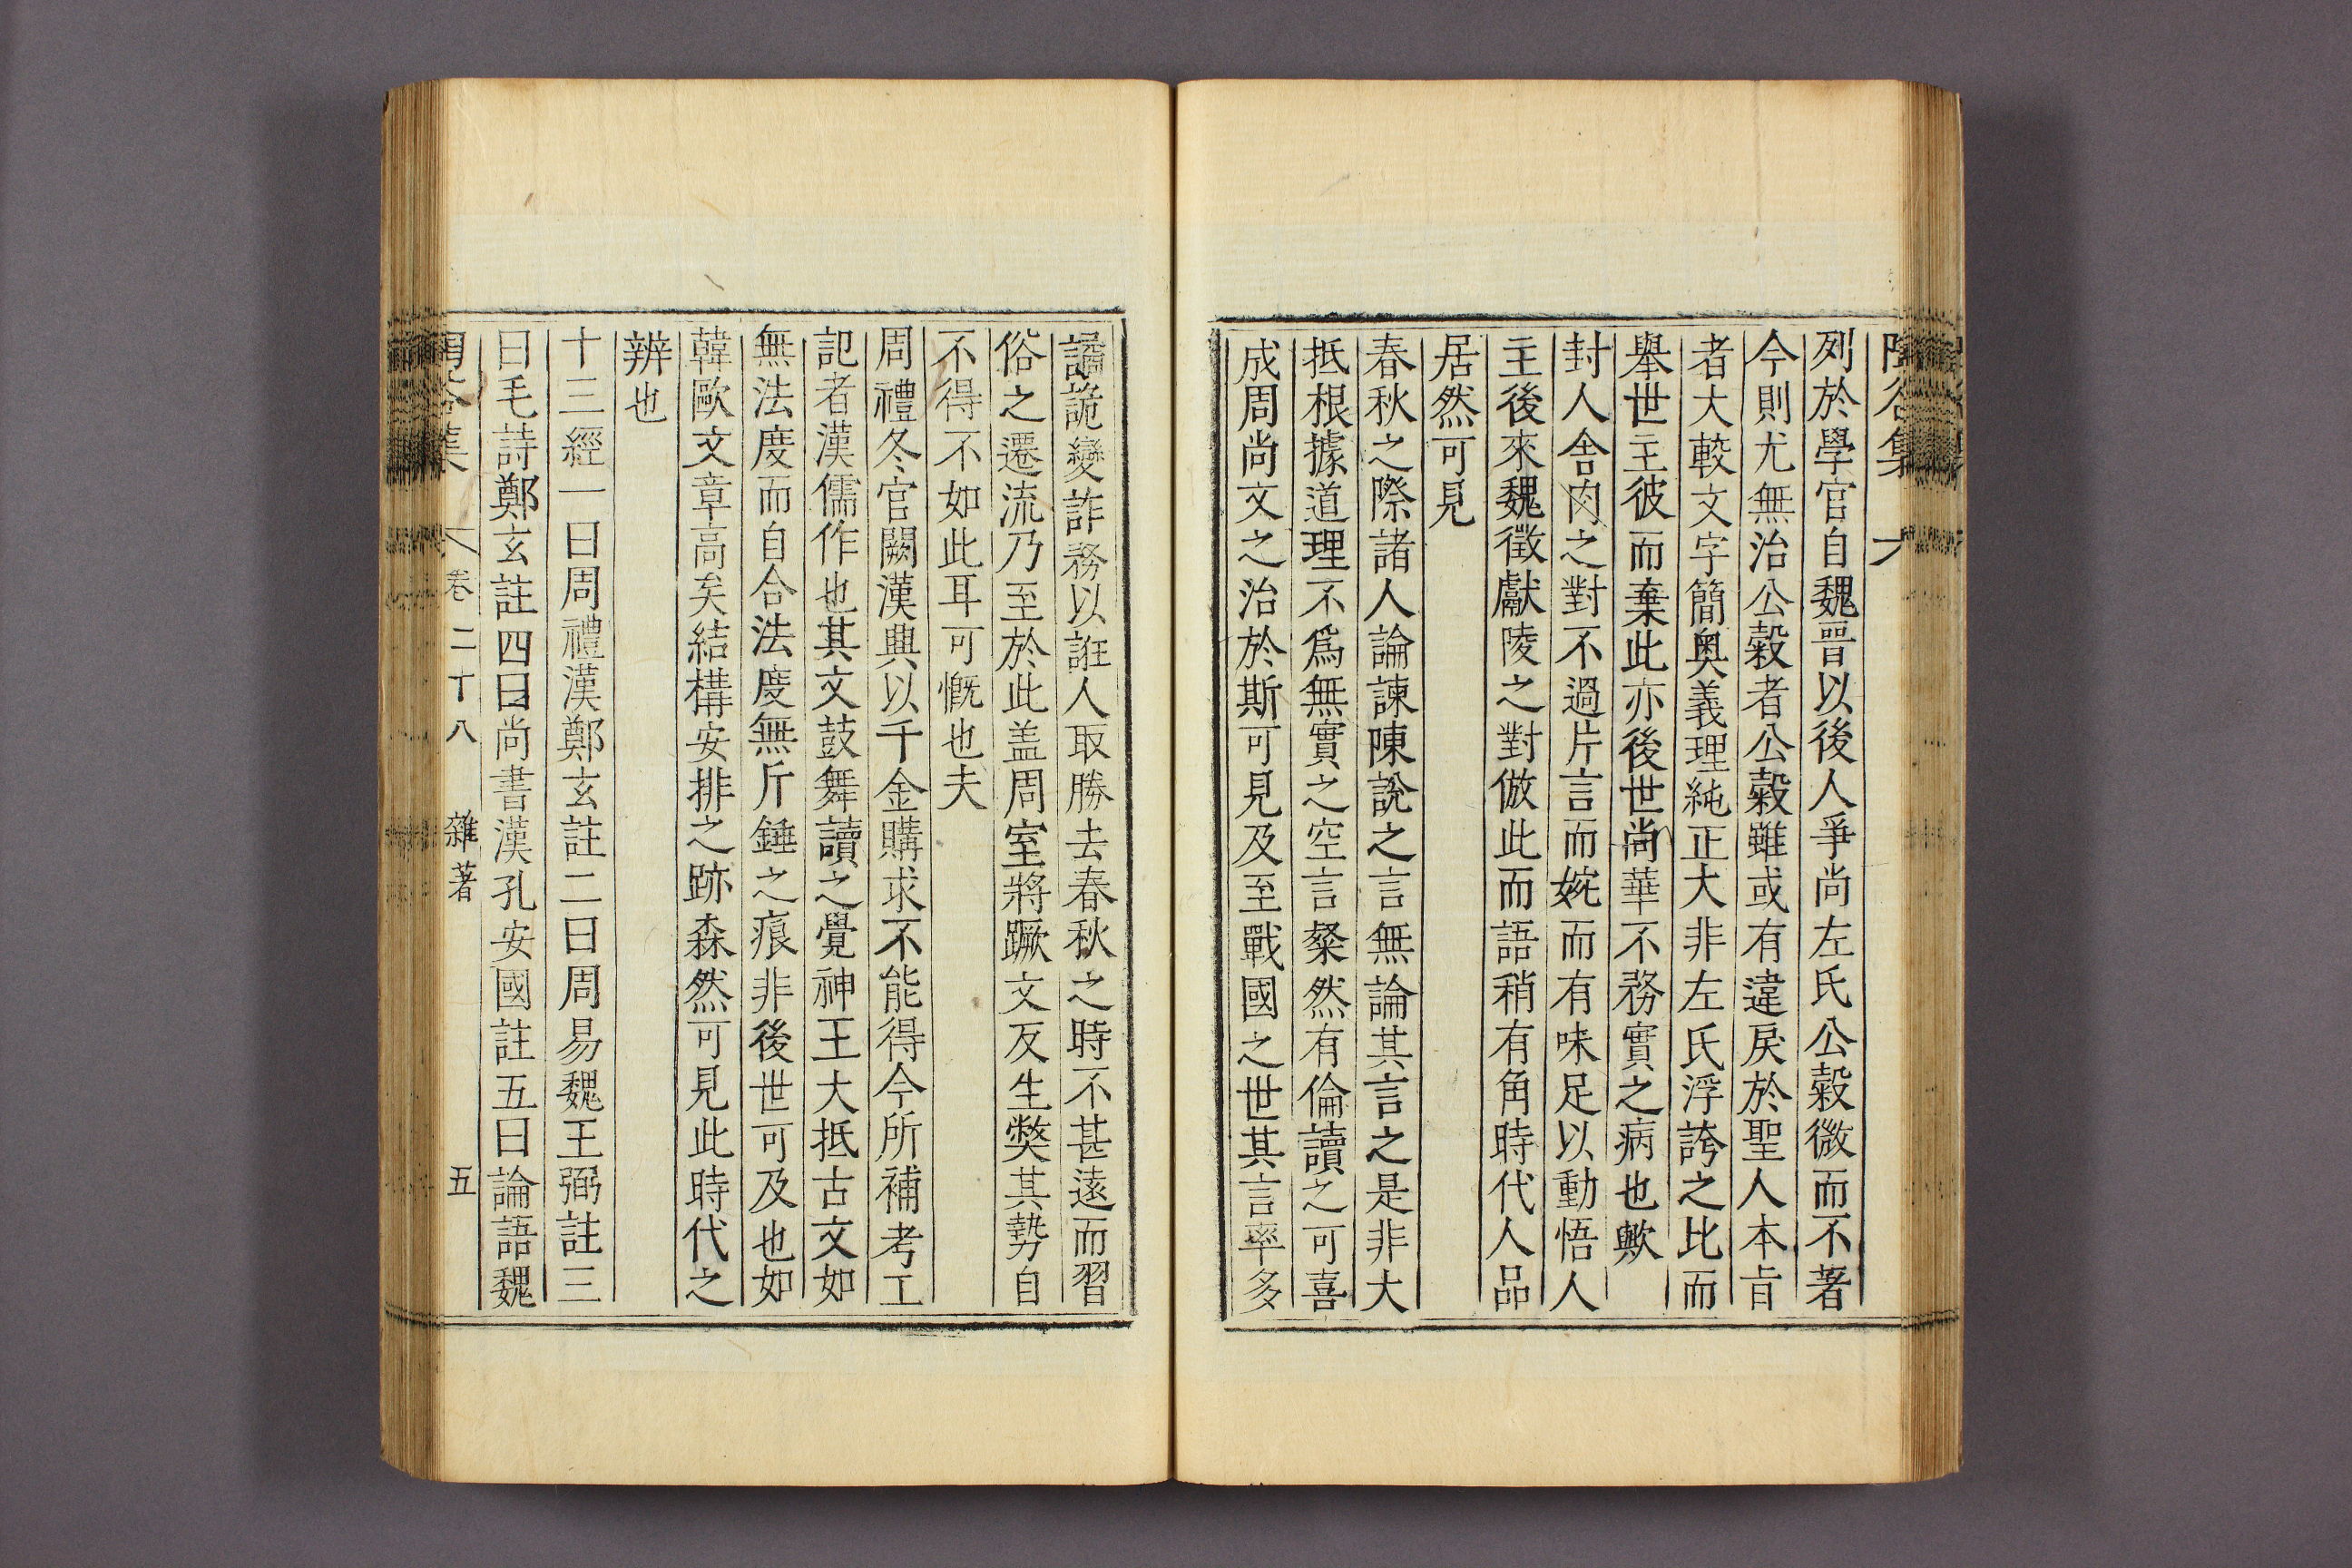 列於學官自魏晉以後人爭尚左氏公穀微而不著
今則尤無治公穀者公穀雖或有違戾於聖人本旨
者大較文字簡奧義理純正大非左氏浮誇之比而
舉世主彼而棄此亦後世尚華不務實之病也歟
封人舍肉之對不過片言而婉而有味足以動悟人
主後來魏徵獻陵之對倣此而語稍有角時代人品
居然可見
春秋之際諸人論諫陳說之言無論其言之是非大
抵根據道理不爲無實之空言粲然有倫讀之可喜
成周尚文之治於斯可見及至戰國之世其言率多
譎詭變詐務以誑人取勝去春秋之時不甚遠而習
俗之遷流乃至於此盖周室將蹶文反生獘其勢自
不得不如此耳可慨也夫
周禮冬官闕漢興以千金購求不能得今所補考工
記者漢儒作也其文鼓舞讀之覺神王大抵古文如
無法度而自合法度無斤錘之痕非後世可及也如
韓歐文章高矣結構安排之跡森然可見此時代之
辨也
十三經一曰周禮漢鄭玄註二曰周易魏王弼註三
曰毛詩鄭玄註四曰尚書漢孔安國註五曰論語魏
谷集 卷二十八 雜著 五